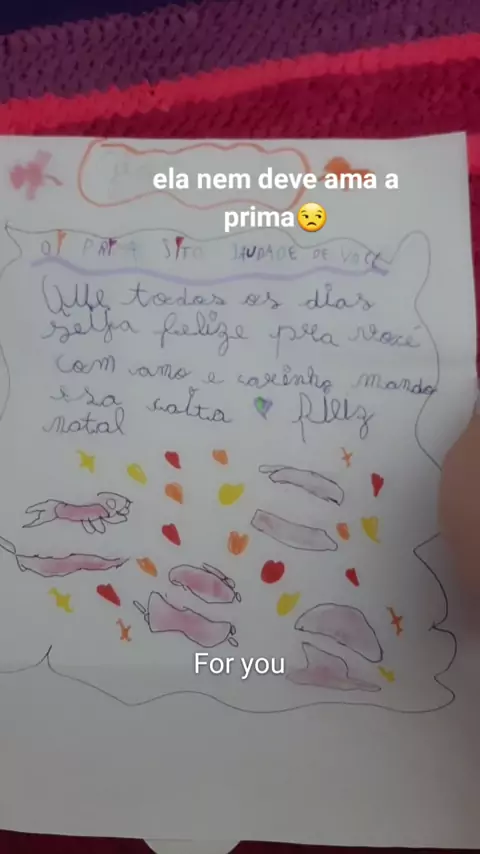 ela nem deve ama a
prima😒
OI PRIMA SITO SAUDADE DE VOCE
Que todos os dias
seija felize pra você
com amo e carinho mando
esa calta feliz
natal
For you